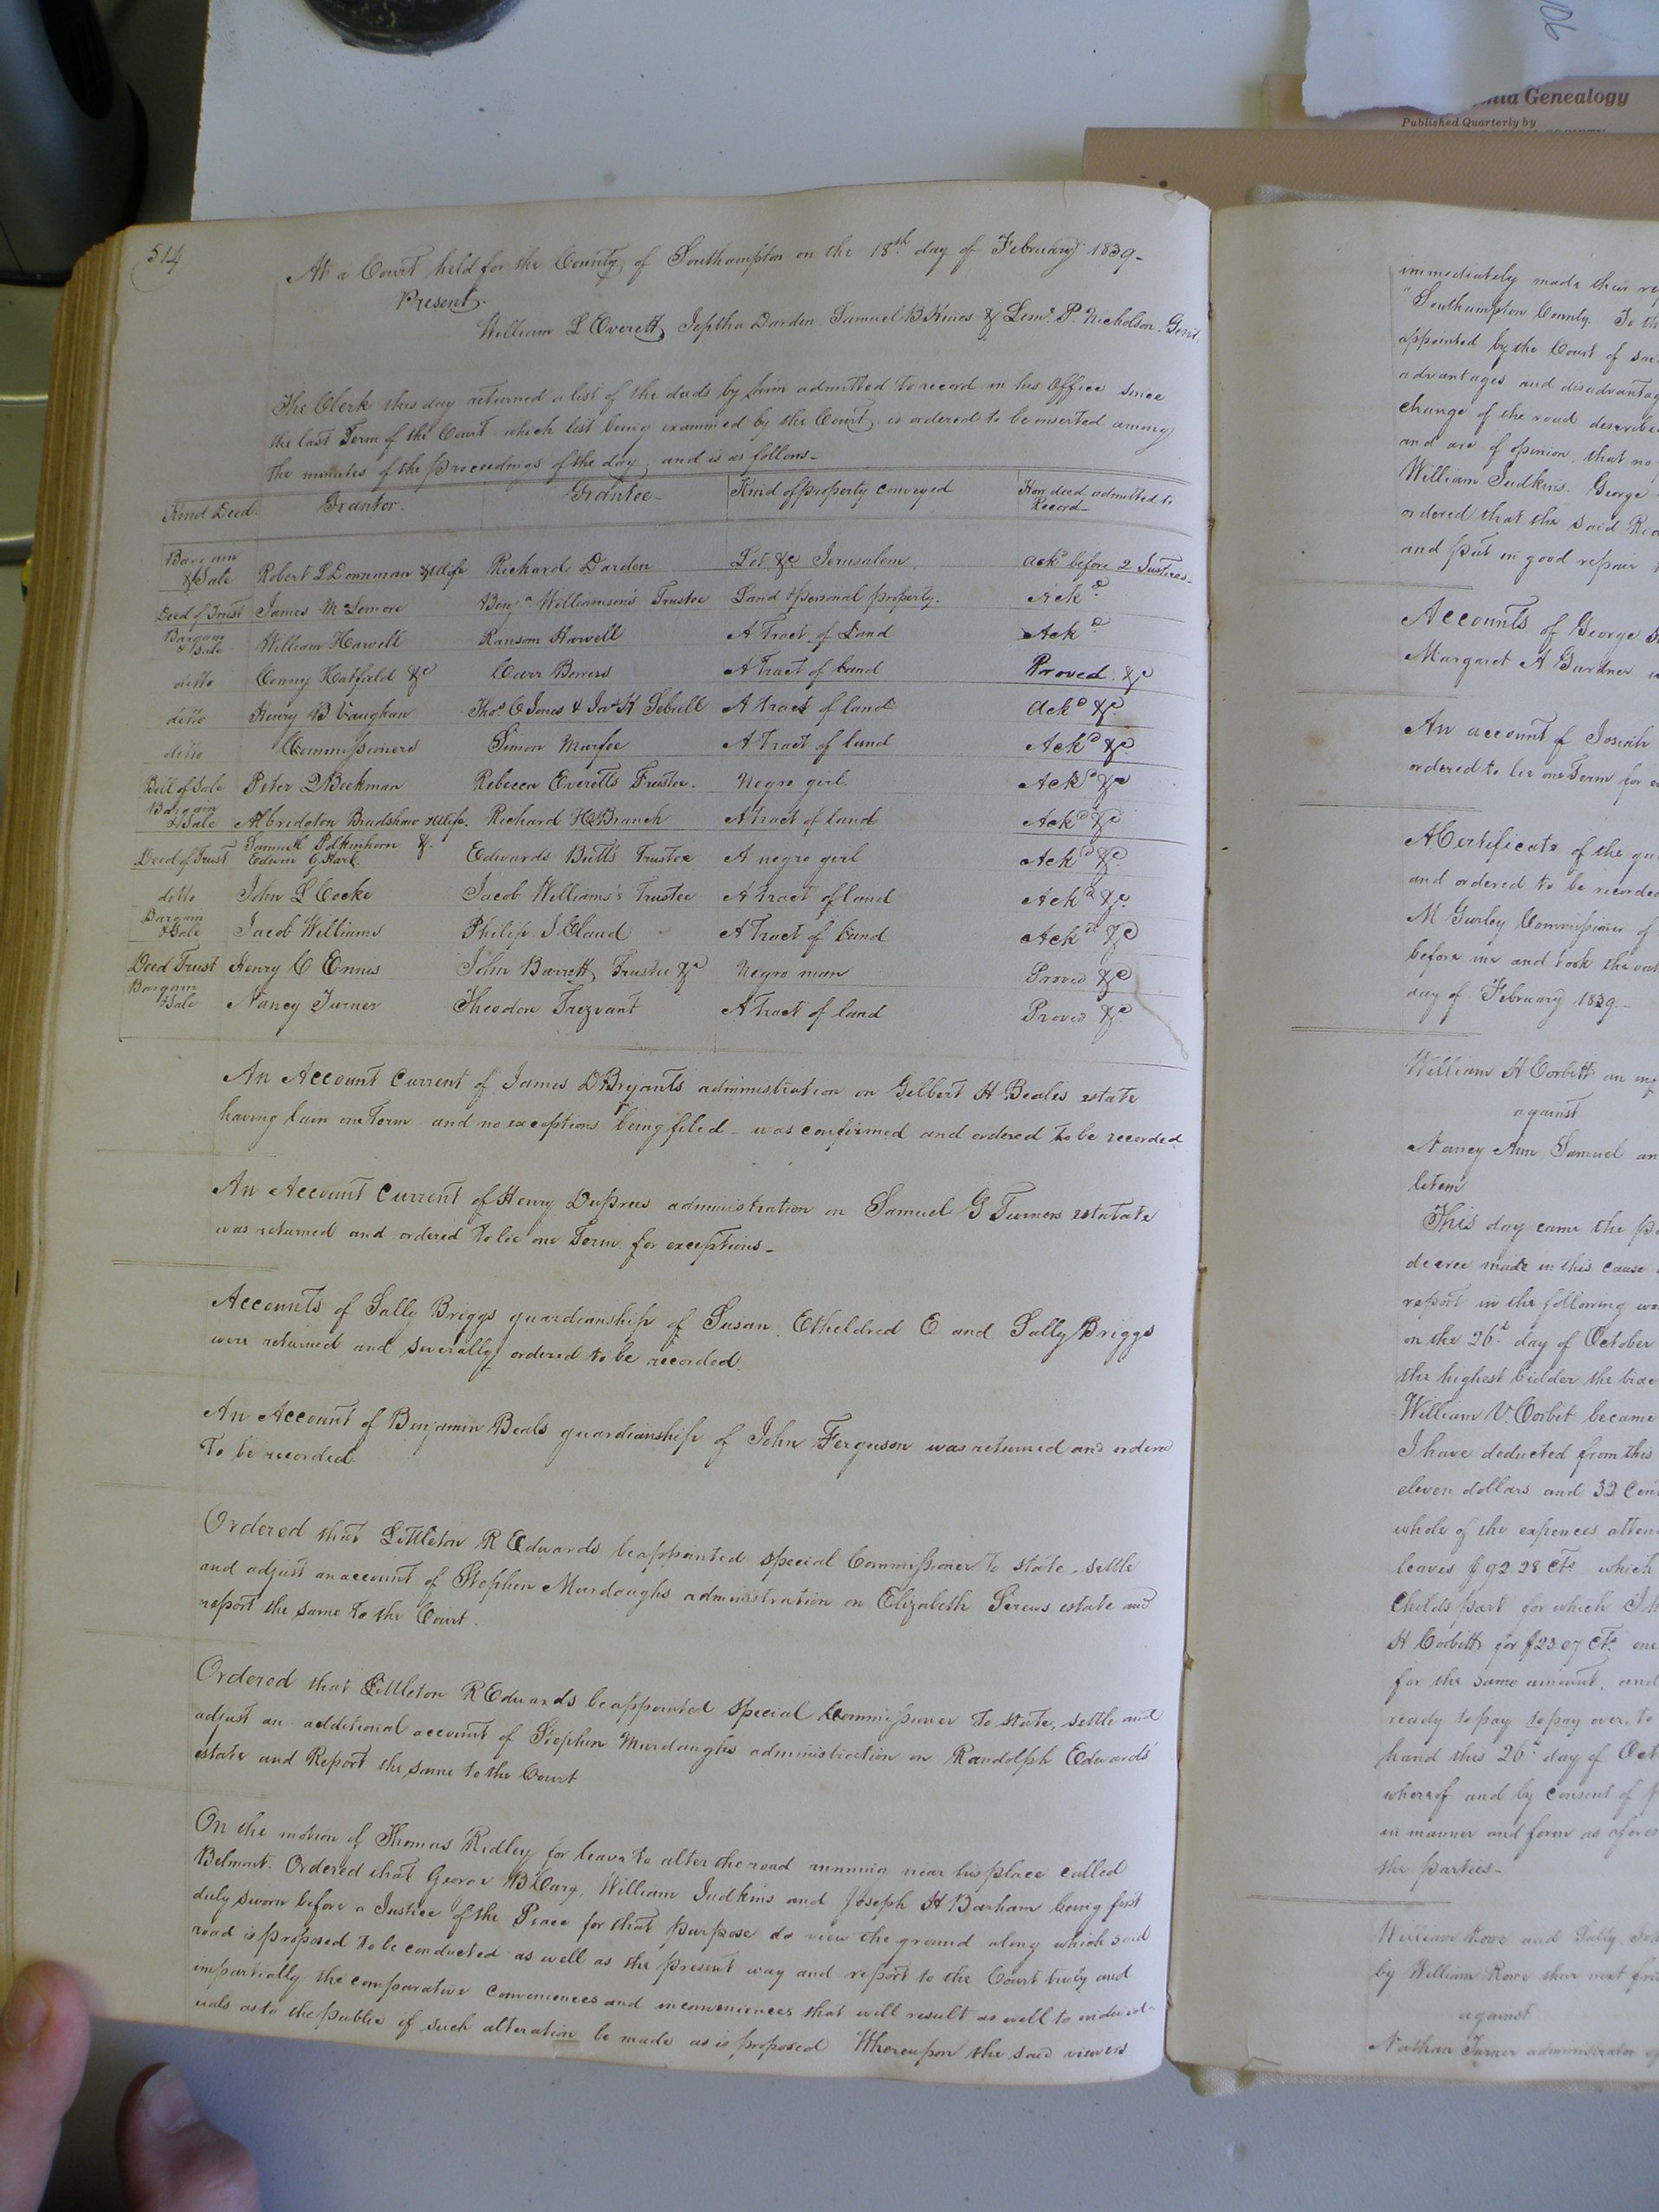 514
At a Court held for the County of Southampton on the 18th day of February 1839-
Present.
William L Everett, Jeptha Darden. Samuel B Hines & Lem. P. Nicholson. Gent.
The Clerk this day returned a list of the deeds by him admitted to record in his Office since
the last Term of the Court which list being examined by the Court. is ordered to be inserted among
the minutes of the proceedings of the day, and is as follows-
Kind Deed. Grantor. Grantee- Kind of property conveyed How deed admitted to Record-
Bargain & Sale Robert L Downman & Wife Richard Darden Lot &c Jerusalem. Ackd before 2 Justices-
Deed of Trust James M Lemore Benja Williamson's Trustee Land & personal property. Ackd
Bargain & Sale William Harvell Ransom Harvell A Tract of Land Ackd
ditto Conny Hatfield &c Carr Bowers A Tract of Land Proved &c
ditto Henry B Vaughan Thos. C Jones & Jas H Sebrell A tract of land Ackd &c
ditto Commissioners Simon Murfee A Tract of land Ackd &c
Bill of Sale Peter D Beekman Rebecca Everetts Trustee. Negro girl. Ackd &c
Bargain & Sale Albridgton Bradshaw & Wife. Richard H Branch A tract of land Ackd &c
Deed of Trust Samuel Polkinhorn & Edwin G Hart. Edwards Butts Trustee A negro girl Ackd &c
ditto John L Cocke Jacob Williams's Trustee A tract of land Ackd &c.
Bargain & Sale Jacob Williams Philip J Claud A Tract of Land Ackd &c
Deed Trust Henry C Ennis John Barrett, Trustee &c Negro man Proved &c
Bargain & Sale Nancy Turner Theodore Trezvant A Tract of land Proved &c.
An Account Current of James D Bryants administration on Gilbert H Beales estate
having lain one Term and no exceptions being filed - was confirmed and ordered to be recorded
An Account Current of Henry Duprees administration on Samuel G Turners estatate
was returned and ordered to lie one Term for exceptions-
Accounts of Sally Briggs guardianship of Susan, Etheldred E and Sally Briggs
were returned and severally ordered to be recorded.
An Account of Benjamin Beals guardianship of John Ferguson was returned and ordered
To be recorded
Ordered that Littleton R Edwards be appointed Special Commissioner to state, settle
and adjust an account of Stephen Murdaughs administration on Elizabeth Screws estate and
report the same to the Court.
Ordered that Littleton R Edwards be appointed Special Commissioner to state, settle and
adjust an additional account of Stephen Murdaughs administration on Randolph Edwards'
estate and Report the same to the Court
On the motion of Thomas Ridley for leave to alter the road running near his place called
Belmont. Ordered that George B Cary, William Judkins and Joseph H Barham being first
duly sworn before a Justice of the Peace for that purpose do view the ground along which said
road is proposed to be conducted as well as the present way and report to the Court truly and
impartially the comparative conveniences and inconveniences that will result as well to individ-
uals as to the public if such alteration be made as is proposed Whereupon the said viewers
immediately made their
Southampton County. To
appointed by the Court of
advantages and
change of the road
and are of opinion, that no
William Judkins. George
ordered that the said
and put in good repair
Accounts of George
Margaret A Gurdner
An account of Josiah
ordered to lie one Term for
A Certificate of the
and ordered to be recorded
M Gurley Commissioner of
before me and took the
day of February 1839-
William H Corbitt an
against
Nancy Ann, Samuel
litem
This day came the
decree made in this cause
report in the following
on the 26th day of October
the highest bidder the
William V. Corbit became
I have deducted from this
eleven dollars and 32
whole of the expences
leaves $92 28 cts which
Childs part for which
H Corbitt for $23 07 cts
for the same amount, and
ready to pay to pay over, to
hand this 26th day of
whereof and by consent of
in manner and form as
the parties-
William Rowe and Sally
by William Rowe their next
against
Nathan Turner administrator
Genealogy
Published Quarterly by
106